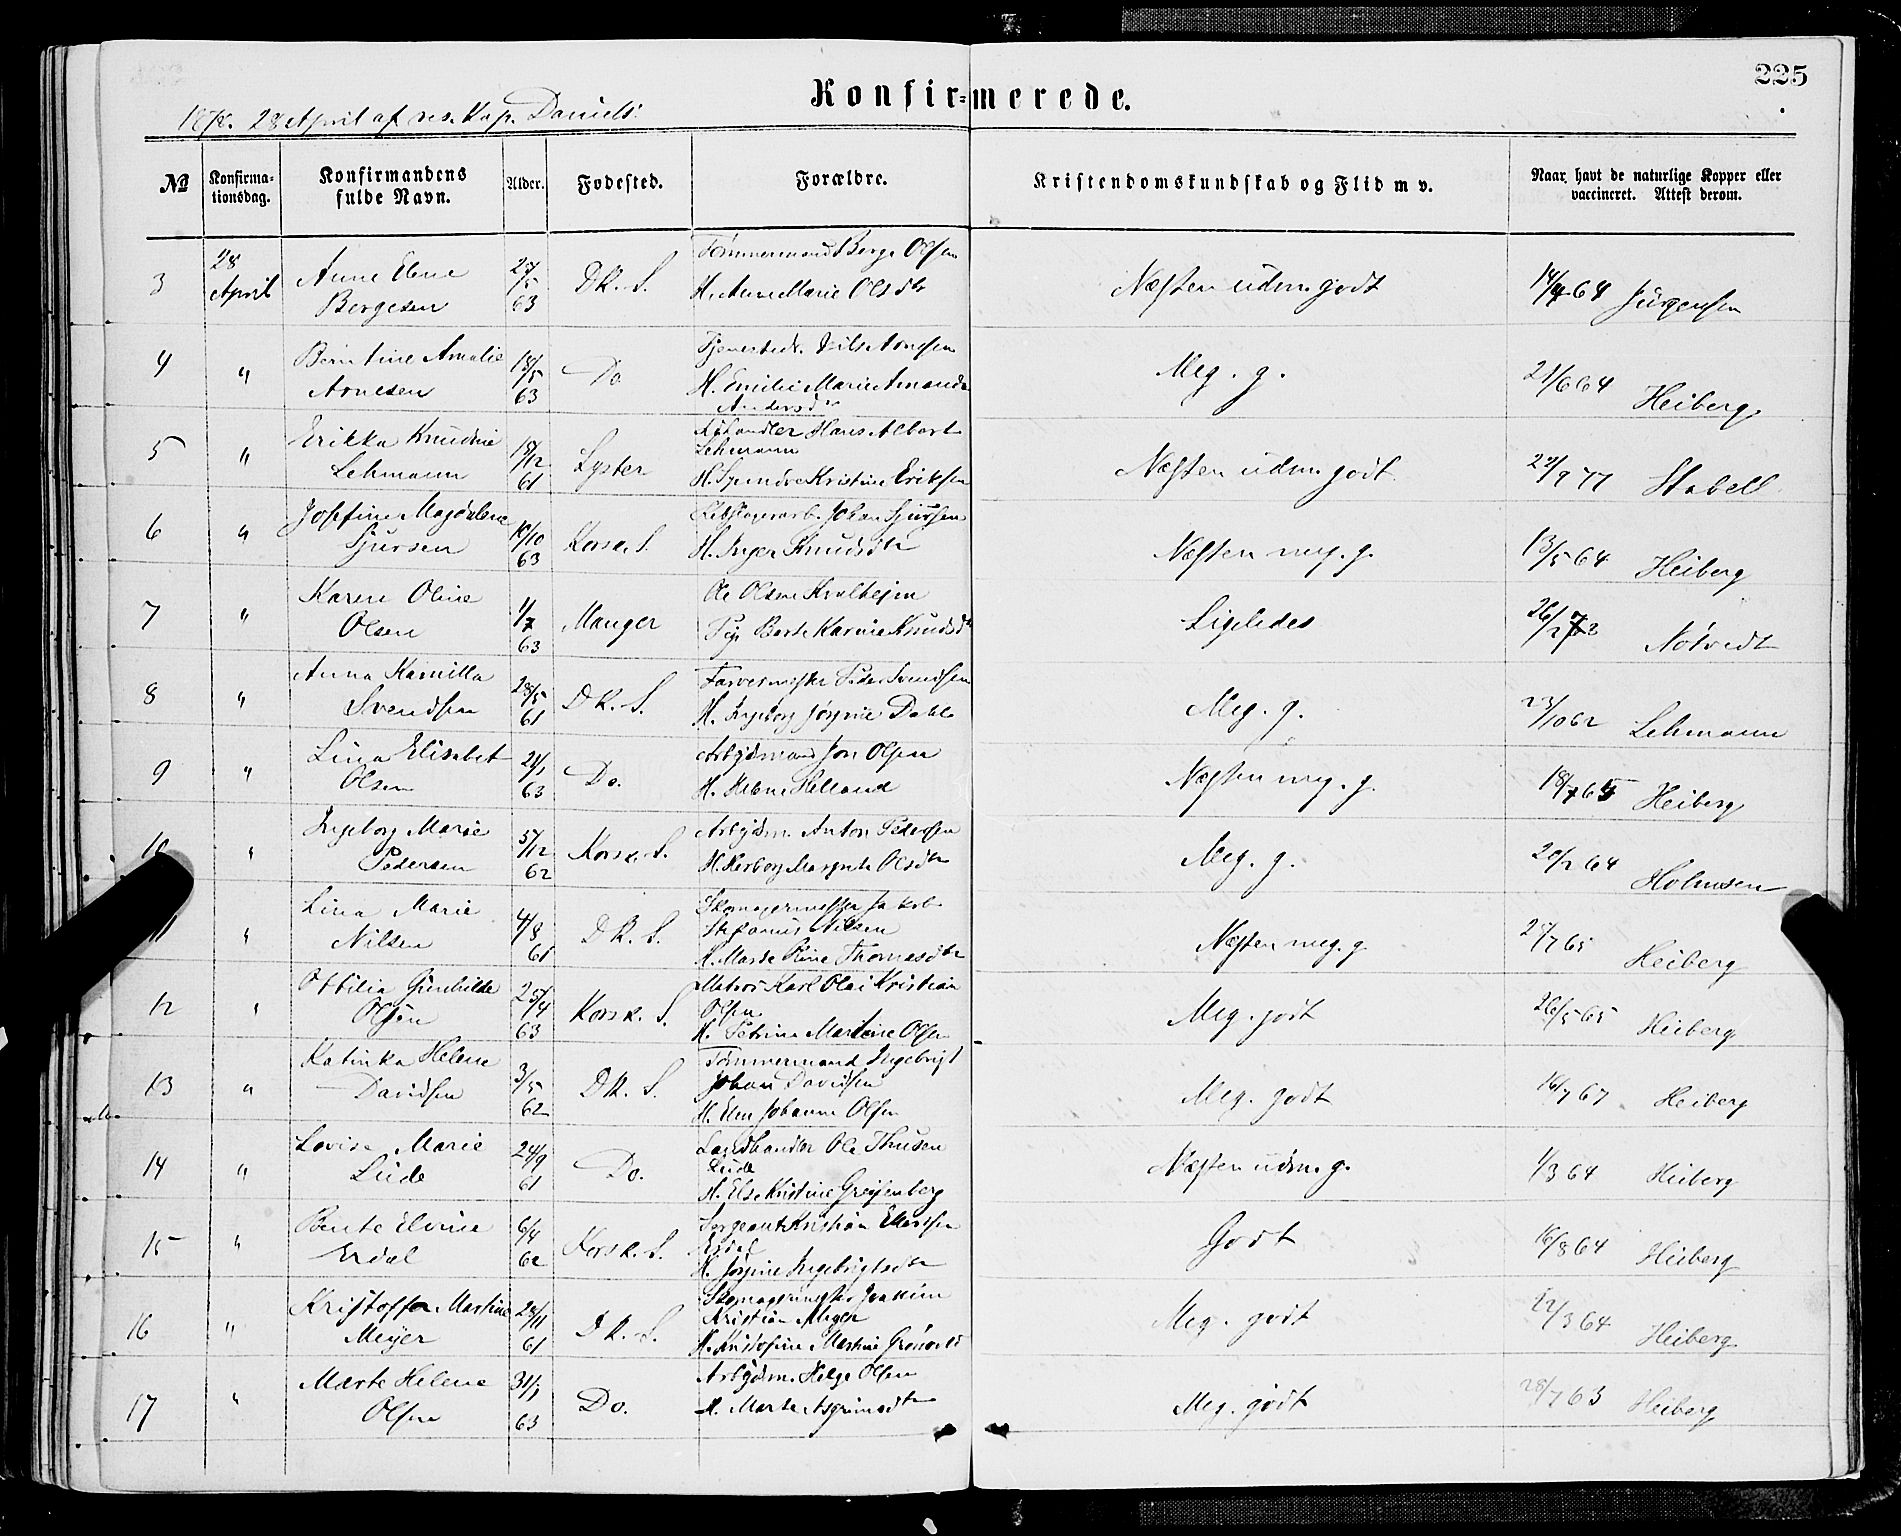 225
Konfir-merede.
1878. 28 April af res. Kap. Daniels.
№ Konfirma-tionsdag. Konfirmandens fulde Navn. Alder. Fødested. Forældre. Kristendomskundskab og Flid m v. Naar havt de naturlige Kopper eller vaccineret. Attest derom.
28 Tømmermand Berge Olsen
3 April Anne Elene Bergesen 27/5 63 DK. S. H. Anne Marie Olsdtr Næsten udm. godt 14/4 64 Jürgensen
4 " Berntine Amalie Arnesen 18/5 63 Do Nils Arnesen
H. Emilie Marie Amanda Andersdtr Meg. g. 21/6 64 Heiberg
5 " Erikka Knudine Lehmann 18/12 61 Lyster Hans Albert Lehmann
H. Kristine Eriksen Næsten udm. godt 29/9 77 Stabell
6 " Josefine Magdalene Sjursen 10/10 63 Korsk. S. Johan Sjursen
H. Inger Knudsdtr Næsten meg. g. 13/5 64 Heiberg
7 " Karen Oline Olsen 1/7 63 Manger Ole Olsen
Pige Berte Karine Knudsdtr Ligeledes 26/2 73 Notvedt
8 " Anna Kamilla Svendsen 28/5 61 DK. S. Farvermester Peder Svendsen
H. Ingeborg Jørgine Dahl Meg. g. 23/10 62 Lehmann
9 " Lina Elisabet Olsen 21/1 63 Do. Arbejdsmand Jon Olsen
H. Helene Helland Næsten meg. g. 18/7 65 Heiberg
10 " Ingeborg Marie Pedersen 5/12 62 Korsk. S. Arbejdsm. Anton Pedersen
H. Herborg Margrete Olsdtr Meg. g. 20/2 64 Holmsen
11 " Lina Marie Nilsen 4/8 61 DK. S. Skomagermester Jakob Stefanus Nilsen
H. Marte Thomasdtr Næsten meg. g. 27/7 65 Heiberg
12 " Ottilia Gunhilde Olsen 25/4 63 Korsk. S. Matros Karl Olai Kristian Olsen
H. Petrine Martine Olsen Meg. godt 26/5 65 Heiberg
13 " Katinka Helene Davidsen 3/5 62 DK. S. Tømmermand Ingebrigt Johan Davidsen
H. Elen Johanne Olsen Meg. godt 16/7 67 Heiberg
14 " Lovise Marie Lude 24/9 61 Do. Landhandler Ole Lude
H. Else Kristine Greifenberg Næsten udm. g. 1/3 64 Heiberg
15 " Bente Elvine Erdal 6/4 62 Korsk. S. Sergeant Kristian Erdal
H. Jørgine Ingebrigtsdtr Godt 16/8 64 Heiberg
16 " Kristoffa Martine Meyer 28/11 61 DK. S. Skomagermester Joakim Kristian Meyer
H. Kristofine Martine Meg. godt 22/3 64 Heiberg
17 " Marte Helene Olsen 31/1 63 Do. Arbejdsm. Helge Olsen
H. Marte Asgrimsdtr Meg. godt 28/7 63 Heiberg